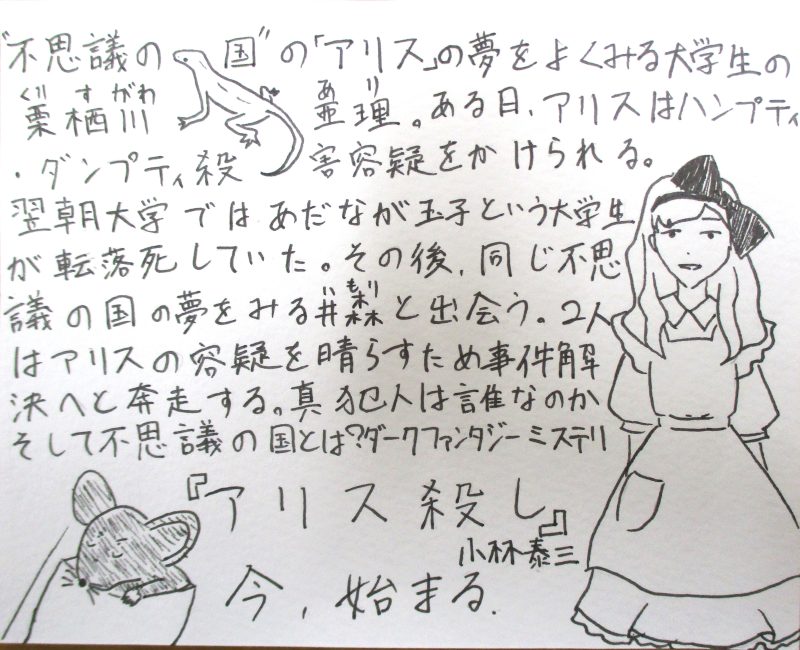 "不思議の国"の「アリス」の夢をよくみる大学生の
くりすがわ あり
栗栖川亜理。ある日、アリスはハンプティ
・ダンプティ殺害容疑をかけられる。
翌朝大学ではあだなが玉子という大学生
が転落死していた。その後、同じ不思
いもり
議の国の夢をみる井森と出会う。2人
はアリスの容疑を晴らすため事件解
決へと奔走する。真犯人は誰なのか
そして不思議の国とは?ダークファンタジーミステリ
『アリス殺し』
小林泰三
今、始まる.